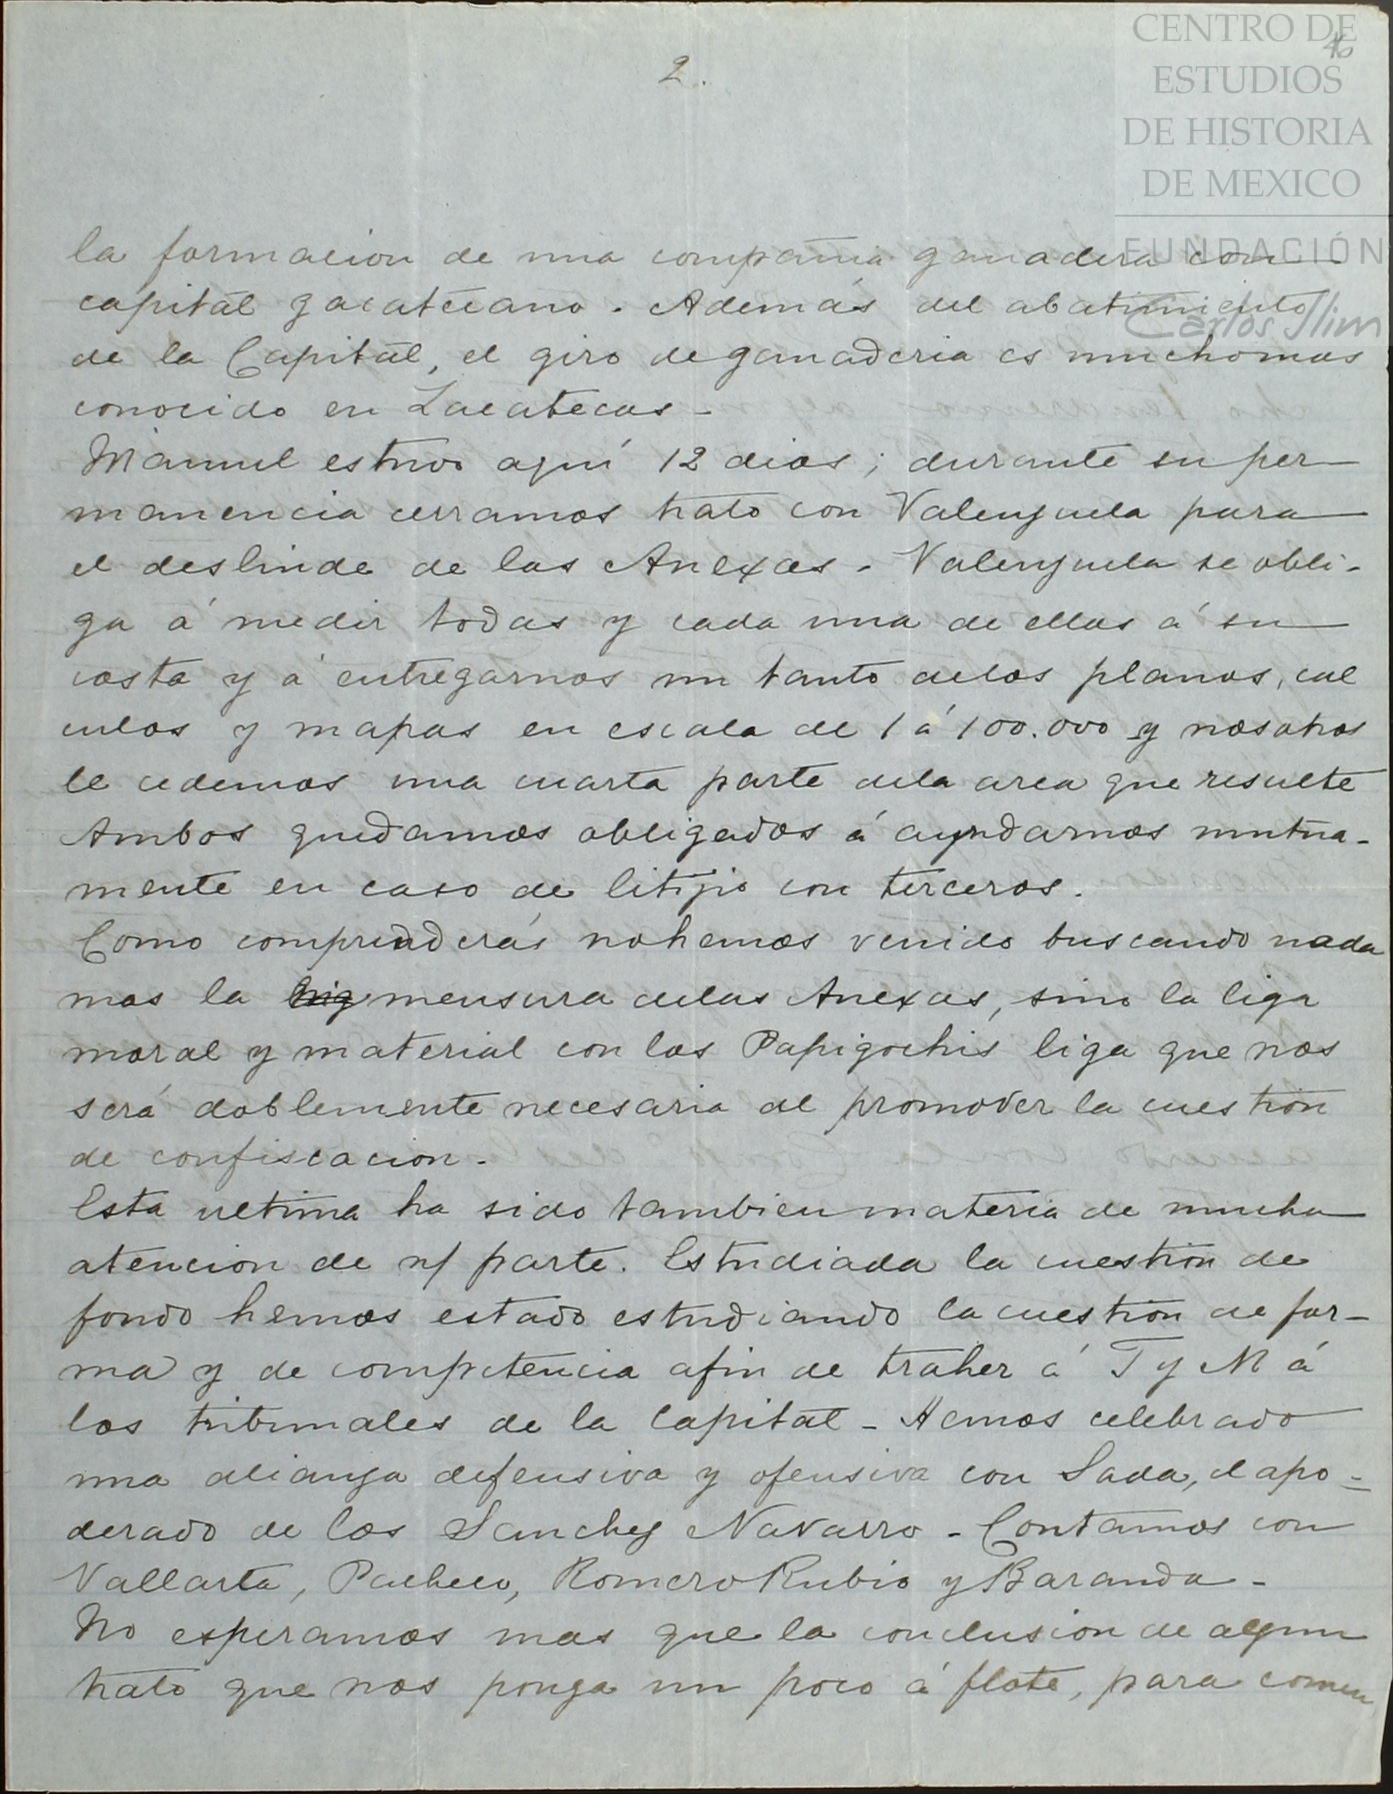 CENTRO DE
ESTUDIOS
DE HISTORIA
DE MEXICO
FUNDACIÓN
Carlos Slim
46
2.
la formacion de una compañia ganadera con
capital zacatecano. Además del abatimiento
de la Capital, el giro de ganaderia es mucho mas
conocido en Zacatecas -
Manuel estuvo aquí 12 dias; durante su per
manencia cerramos trato con Valenzuela para
el deslinde de las Anexas. Valenzuela se obli-
ga á medir todas y cada una de ellas á su
costa y á entregarnos un tanto delos planos, cal
culos y mapas en escala de 1 á 100.000 y nosotros
le cedemos una cuarta parte dela area que resulte
Ambos quedamos obligados á ayudarnos mutua-
mente en caso de litijio con terceros.
Como comprenderás nohemos venido buscando nada
mas la mensura delas Anexas, sino la liga
moral y material con los Papigochis liga que nos
será doblemente necesaria al promover la cuestion
de confiscacion -
Esta ultima ha sido tambien materia de mucha
atencion de n/ parte. Estudiada la cuestion de
fondo hemos estado estudiando la cuestion de for-
ma y de competencia afin de traher á T y M á
los tribunales de la Capital - Hemos celebrado
una alianza defensiva y ofensiva con Sada, el apo-
derado de los Sanchez Navarro - Contamos con
Vallarta, Pacheco, Romero Rubio y Baranda -
No esperamos mas que la conclusion de algun
trato que nos ponga un poco á flote, para comen